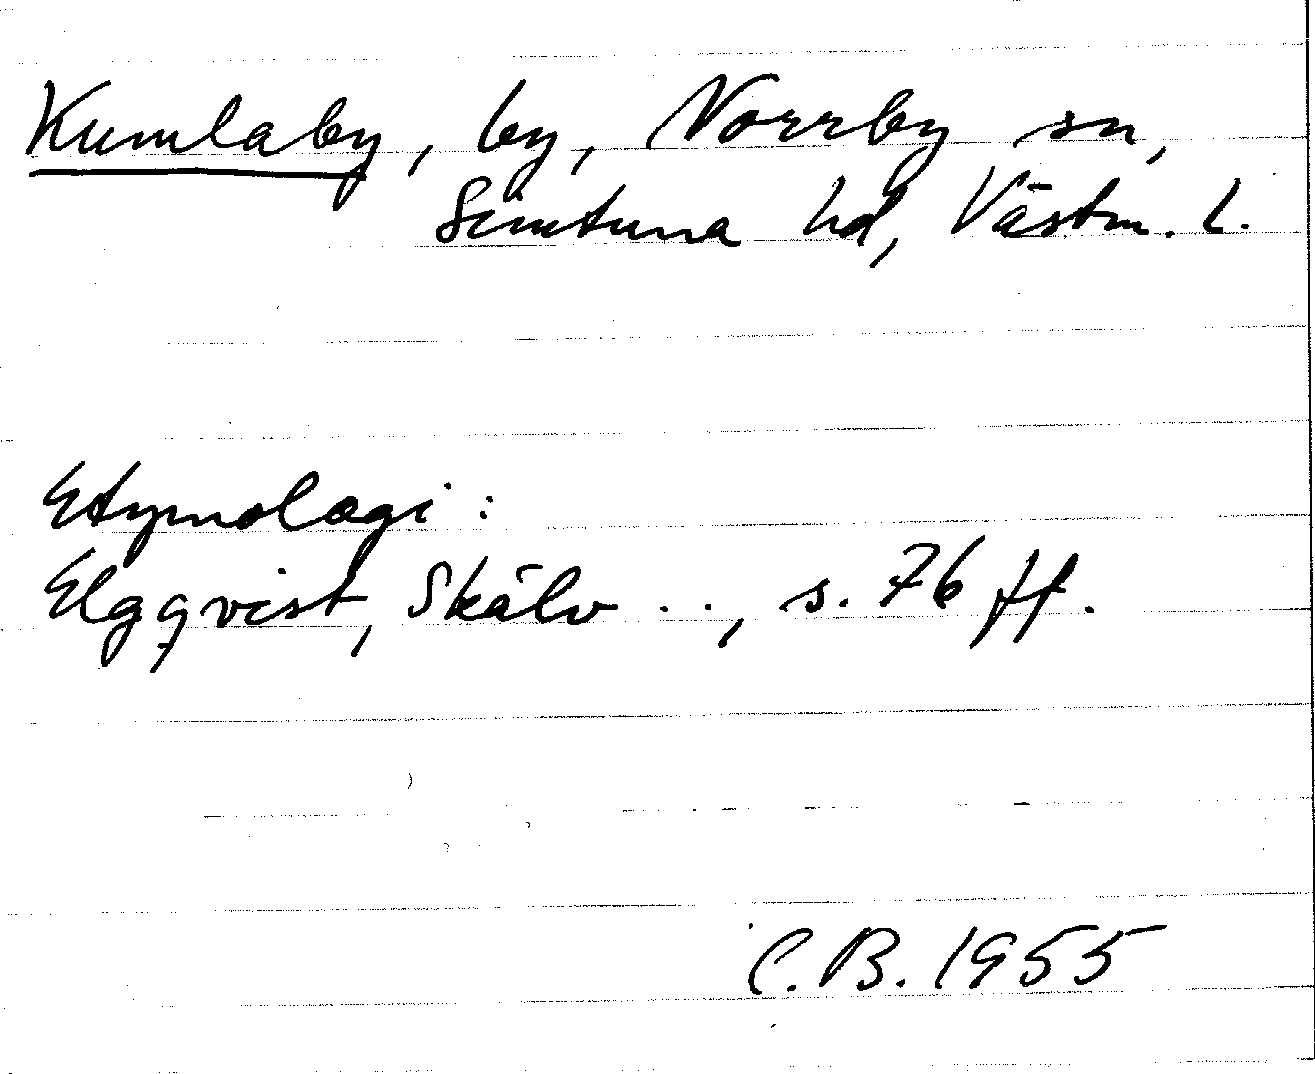 Kumlaby, by, Norrby sn,
Simtuna hd, Västm. l.
Etymologi:
Elgqvist, Skälv . . , s. 76 ff.
C. B. 1955